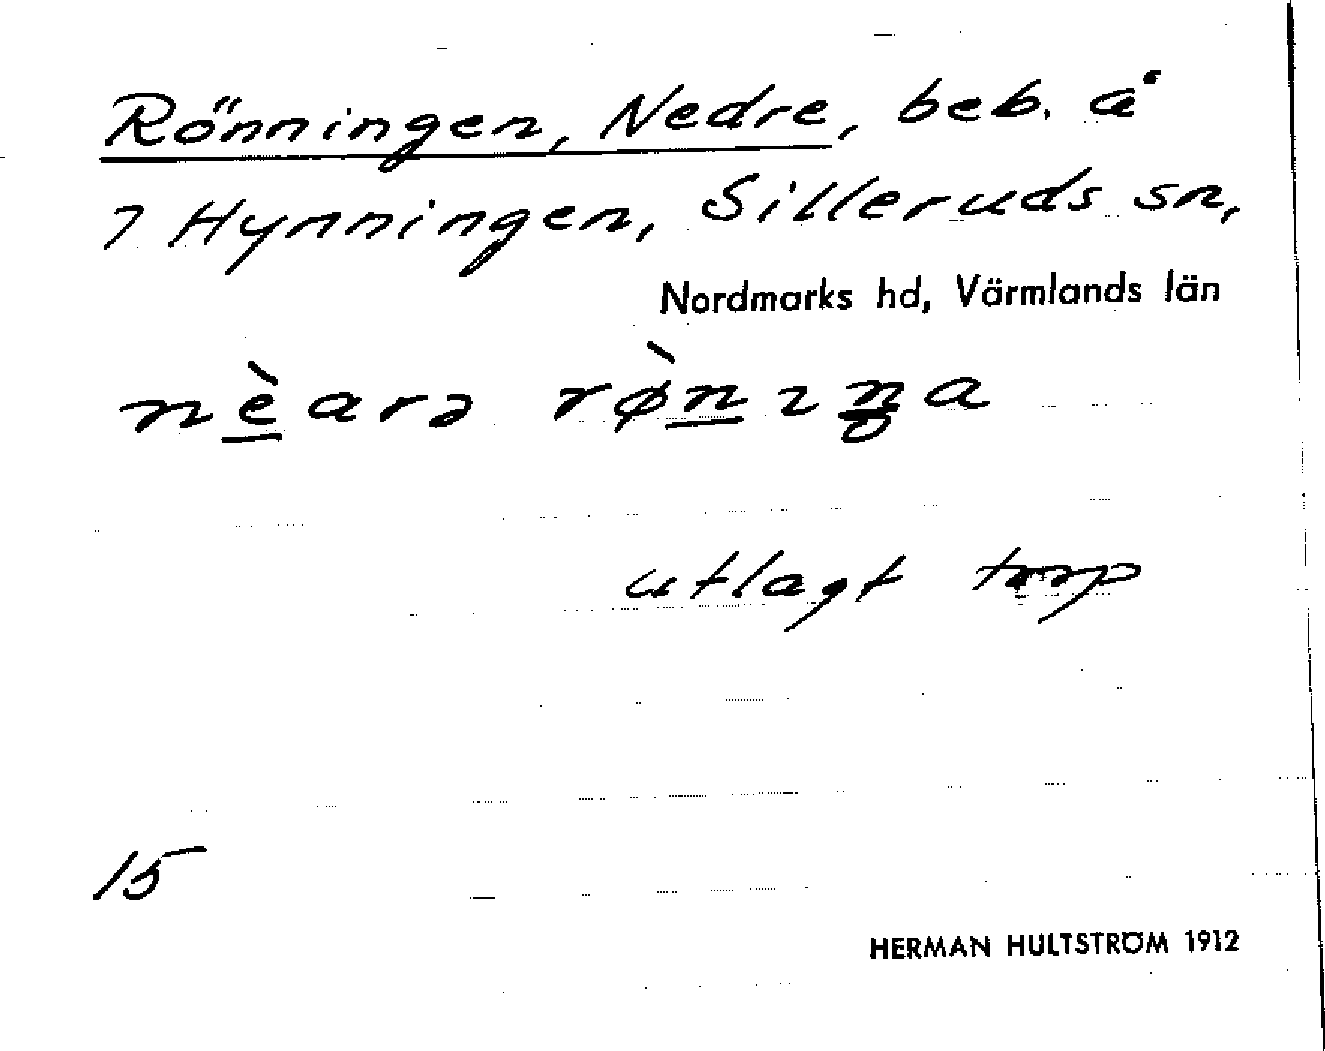 Rönningen, Nedre, beb. å
7 Hynningen, Silleruds sn,
Nordmarks hd, Värmlands län
nèarə rø̀nıŋa
utlagt torp
15
HERMAN HULTSTRÖM 1912